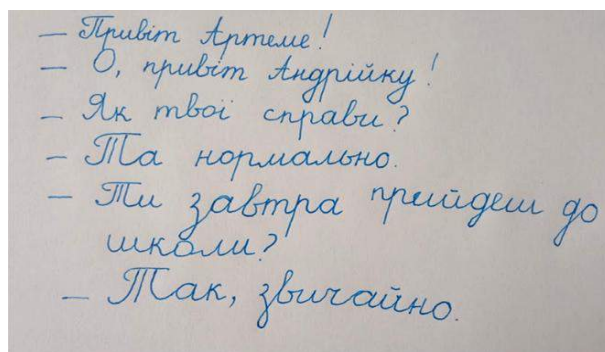 – Привіт Артеме!
– О, привіт Андрійку!
– Як твої справи?
– Та нормально.
– Ти завтра прийдеш до
школи?
– Так, звичайно.